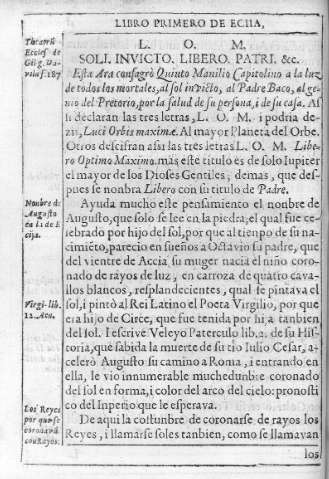 LIBRO PRIMERO DE ECIIA,
L. O. M.
SOLI. INVICTO. LIBERO. PATRI. &c.
Esta Ara consagrò Quinto Manilio Capitolino a la luz
de todos los mortales, al sol invicto, al Padre Baco, al ge-
nio del Pretorio, por la salud de su persona, i de su casa. As
si declaran las tres letras, L. O. M. i podria de-
zir, Luci Orbis maximæ. Al mayor Planeta del Orbe.
Otros descifran assi las tres letras L. O. M. Libe-
ro Optimo Maximo. mas este titulo es de solo Iupiter
el mayor de los Dioses Gentiles; demas, que des-
pues se nonbra Libero con su titulo de Padre.
Ayuda mucho este pensamiento el nonbre de
Augusto, que solo se lee en la piedra, el qual fue ce-
lebrado por hijo del sol, por que al tienpo de su na-
cimiẽto, parecio en sueños a Octavio su padre, que
del vientre de Accia, su muger nacia el niño coro-
nado de rayos de luz, en carroza de quatro cava-
llos blancos, resplandecientes, qual se pintava el
sol, i pintò al Rei Latino el Poeta Virgilio, por que
era hijo de Circe, que fue tenida por hija tanbien
del sol. I escrive Veleyo Paterculo lib. 2. de su His-
toria, que sabida la muerte de su tio Iulio Cesar, a-
celerò Augusto su camino a Roma, i entrando en
ella, le vio innumerable muchedunbre coronado
del sol en forma, i color del arco del cielo: pronosti
co del Inperio que le esperava.
De aqui la costunbre de coronarse de rayos los
Reyes, i llamarse soles tanbien, como se llamavan
los
Theatro
Eccles. de
Gil g. Da-
vila f. 187
Nonbre de
Augusto
en la de E
cija.
Virgi. lib.
12. Aen.
Los Reyes
por que se
coronavã
con Rayos.